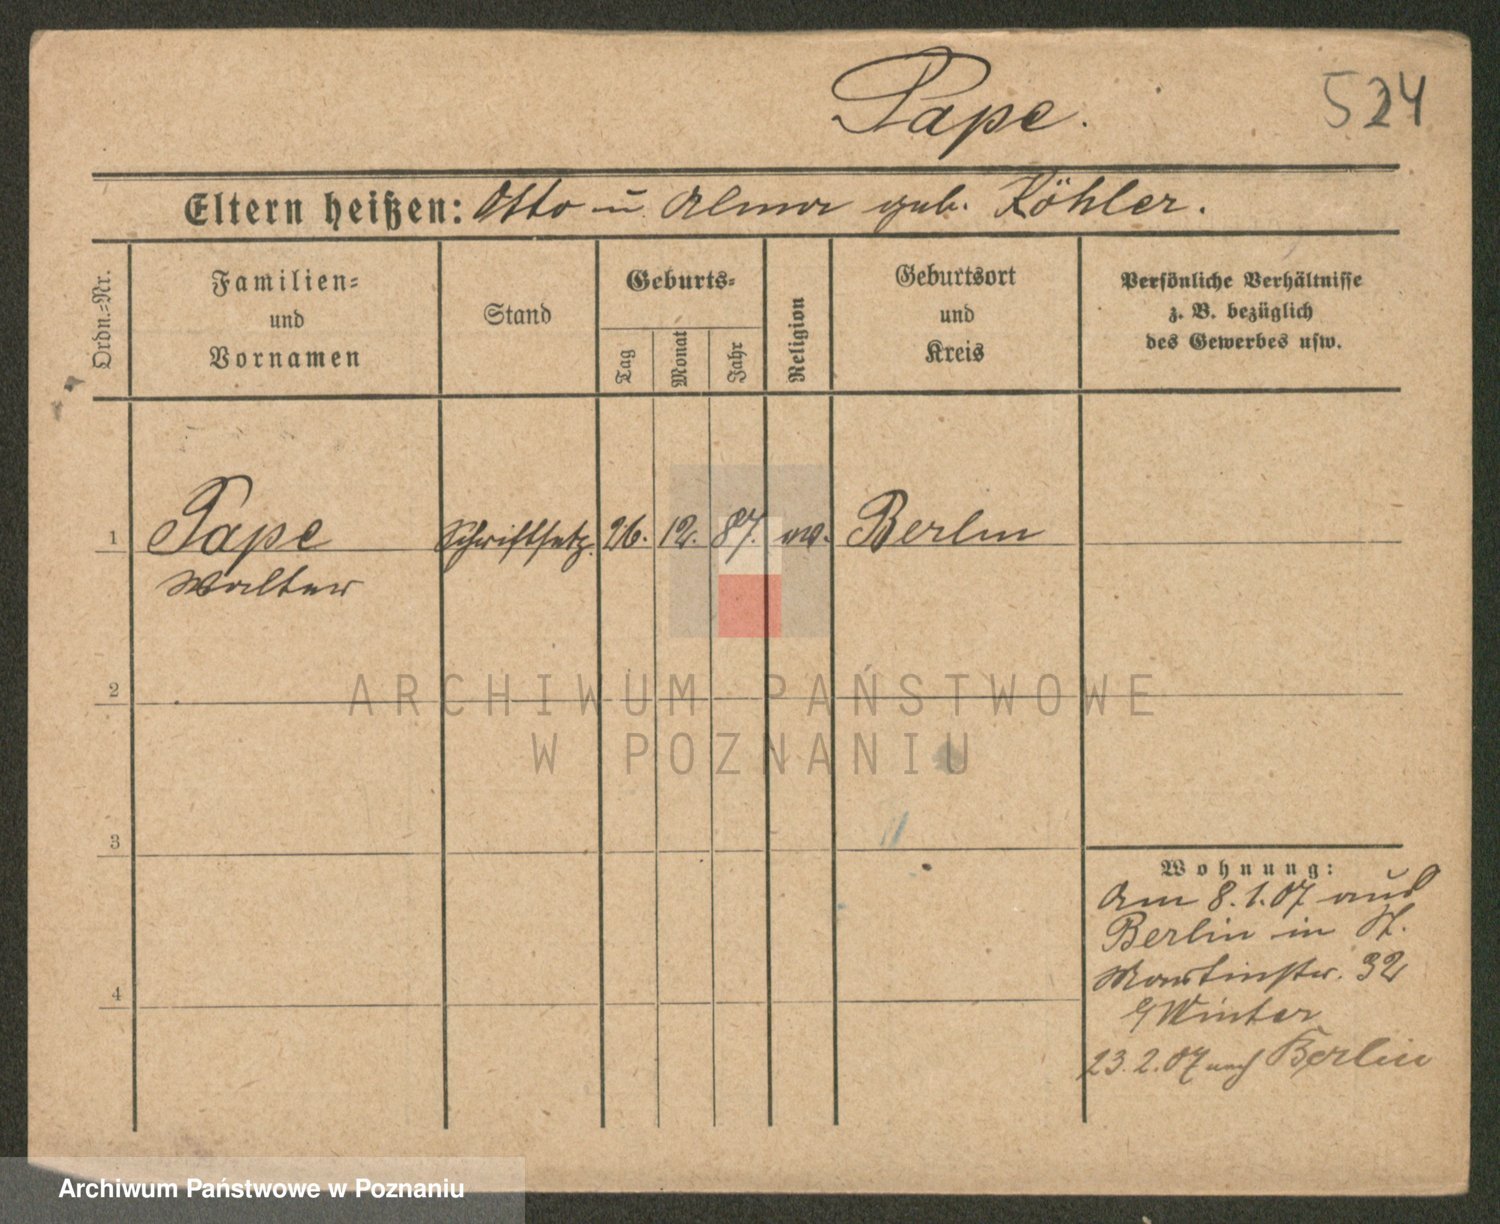 Pape.
524
Eltern heißen: Otto u. Alma geb. Köhler.
Ordn.=Nr.
Familien=
und
Vornamen
Stand
Geburts=
Tag
Monat
Jahr
Religion
Geburtsort
und
Kreis
Persönliche Verhältnisse
z. B. bezüglich
des Gewerbes usw.
1 Pape Schriftsetz. 26. 12. 87. ev. Berlin
Walter
2
ARCHIWUM PAŃSTWOWE
W POZNANIU
3
Wohnung:
Am 8.1.07 aus
Berlin in St.
Martinstr. 32
4
b/ Winter
23.2.07 nach Berlin
Archiwum Państwowe w Poznaniu